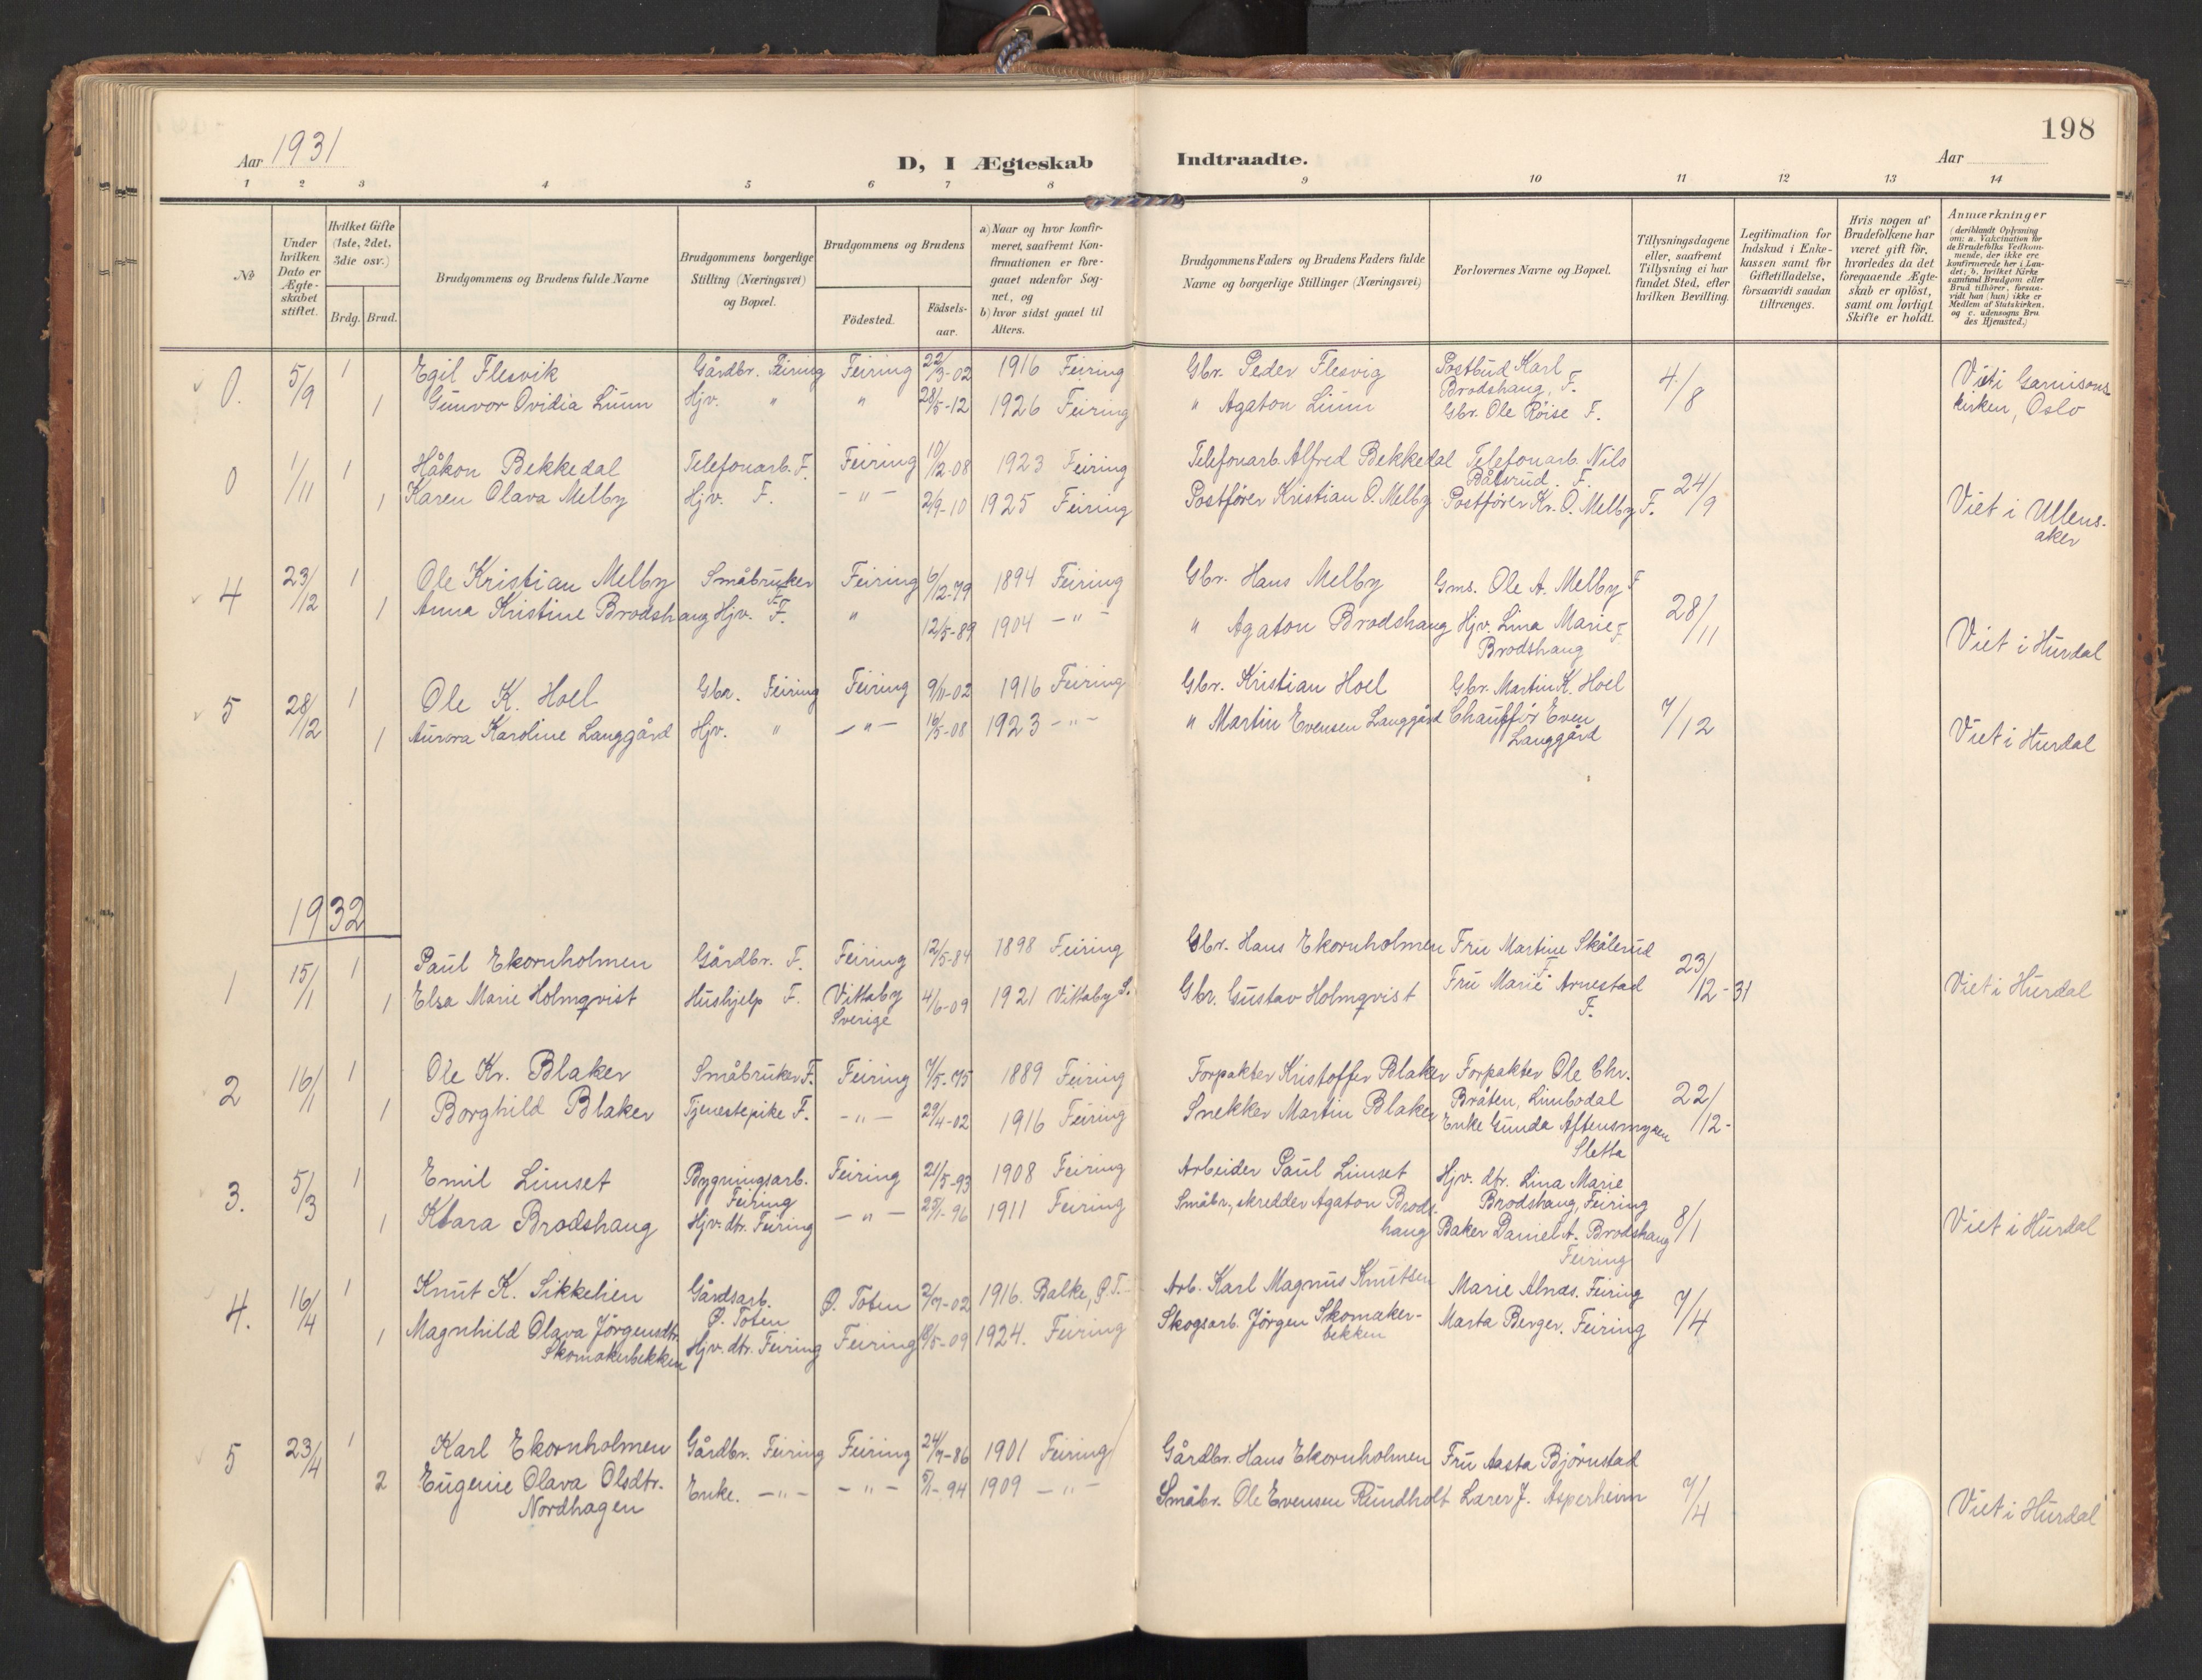 198
Aar 1931
D, I Ægteskab Indtraadte.
Aar
1 2 3 4 5 6 7 8 9 10 11 12 13 14
No
Under hvilken Dato er Ægteskabet stiftet.
Hvilket Gifte (1ste, 2det, 3die osv.)
Brdg. Brud.
Brudgommens og Brudens fulde Navne
Brudgommens borgerlige Stilling (Næringsvei) og Bopæl.
Brudgommens og Brudens
Födested.
Födselsaar.
a) Naar og hvor konfirmeret, saafremt Konfirmationen er foregaaet udenfor Sognet, og
b) hvor sidst gaaet til Alters.
Brudgommens Faders og Brudens Faders fulde Navne og borgerlige Stillinger (Næringsvei)
Forlovernes Navne og Bopæl.
Tillysningsdagene eller, saafremt Tillysning ei har fundet Sted, efter hvilken Bevilling.
Legitimation for Indskud i Enkekassen samt for Giftetilladelse, forsaavidt saadan tiltrænges.
Hvis nogen af Brudefolkene har været gift för, hvorledes da det foregaaende Ægteskab er oplöst, samt om lovligt Skifte er holdt.
Anmærkninger (deriblandt Oplysning om: a. Vakcination for de Brudefolks Vedkommende, der ikke ere konfirmerede her i Landet; b. hvilket Kirkesamfund Brudgom eller Brud tilhörer, forsaavidt han (hun) ikke er Medlem af Statskirken. og c. udensogns Brudes Hjemsted.)
0. 5/9 1 Egil Flesvik Gårdbr. Feiring Feiring 22/3-02 1916 Feiring Gbr. Peder Flesvig Postbud Karl Brodshaug, F. 4/8 Viet i Garnisons
1 Gunvor Ovidia Linn Hjv. " " 28/5-12 1926 Feiring " Agaton Linn Gbr. Ole Röise F. kirken, Oslo
0 1/11 1 Håkon Bekkedal Telefonarb. F. Feiring 17/12-08 1923 Feiring Telefonarb. Alfred Bekkedal Telefonarb. Nils Båtsrud. F. 24/9
1 Karen Olava Melby Hjv. F. -"- 2/9-10 1925 Feiring Postförer Kristian O. Melby Postförer Kr. O. Melby F. Viet i Ullens-
aker
4 23/12 1 Ole Kristian Melby Småbruker F. Feiring 6/12-79 1894 Feiring Gbr. Hans Melby Gms. Ole A. Melby F 28/11
1 Anna Kristine Brodshaug Hjv. F. " 12/5-89 1904 -"- " Agaton Brodshaug Hjv. Lina Marie F. Viet i Hurdal
Brodshaug
5 28/12 1 Ole K. Hoel Gbr. Feiring Feiring 9/11-02 1916 Feiring Gbr. Kristian Hoel Gbr. Martin K. Hoel 7/12
1 Aurora Karoline Langgård Hjv. " -"- 16/5-08 1923 -"- " Martin Evensen Langgård Chaufför Even Viet i Hurdal
Langgård
1932
1 15/1 1 Paul Ekornholmen Gårdbr. F. Feiring 12/5-84 1898 Feiring Gbr. Hans Ekornholmen Fru Martine Skålerud F. 23/12-31
1 Elsa Marie Holmqvist Hushjelp F. Vittaby 4/6-09 1921 Vittaby S. Gbr. Gustav Holmqvist Fru Marie Arnestad Viet i Hurdal
Sverige F.
2 16/1 1 Ole Kr. Blaker Småbruker F. Feiring 7/5-75 1889 Feiring Forpakter Kristoffer Blaker Forpakter Ole Chr. 22/12-
1 Borghild Blaker Tjenestepike F. -"- 29/4-02 1916 Feiring Snekker Martin Blaker Bråten, Limbodal
Enke Gunda Aftensmyren
Sletta
3. 5/3 1 Emil Limset Bygningsarb. Feiring Feiring 21/5-93 1908 Feiring Arbeider Paul Limset Hjv. dtr. Lina Marie 8/1
1 Klara Brodshaug Hjv. dtr. Feiring -"- 25/1-96 1911 Feiring Småbr., skredder Agaton Brods- Brodshaug, Feiring Viet i Hurdal
haug Baker Daniel A. Brodshaug
Feiring
4. 16/4 1 Knut K. Sikkelien Gårdsarb. Ø. Toten Ø. Toten 2/7-02 1916. Balke, Ø.T. Arb. Karl Magnus Knutsen Marie Alnæs. Feiring 7/4
1 Magnhild Olava Jörgensdtr. Hjv. dtr. Feiring Feiring /5-09 1924. Feiring Skogsarb. Jörgen Skomaker- Marta Berger. Feiring
Skomakerbekken bekken
5 23/4 1 Karl Ekornholmen Gårdbr. Feiring Feiring 24/7-86 1901 Feiring Gårdbr. Hans Ekornholmen Fru Aasta Björnstad 7/4
2 Eugenie Olava Olsdtr. Enke. -"- -"- -94 1909 -"- Småbr. Ole Evensen Rundholt Larer J. Asperheim Viet i Hurdal
Nordhagen